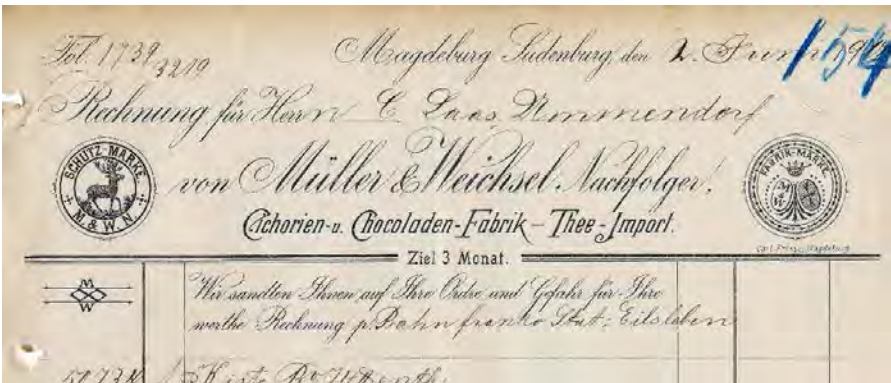 Fol. 1739
3219
Magdeburg Sudenburg, den 2. Juni 19
154
Rechnung für Herrn C. Laas, Ummendorf
von Müller & Weichsel Nachfolger,
SCHUTZ-MARKE
M & W. N.
FABRIK-MARKE
Cichorien- u. Chocoladen-Fabrik – Thee-Import.
Ziel 3 Monat.
M
W
Wir sandten Ihnen auf Ihre Ordre und Gefahr für Ihre
werthe Rechnung p. Bahn franko Stat: Eilsleben
1 Kiste